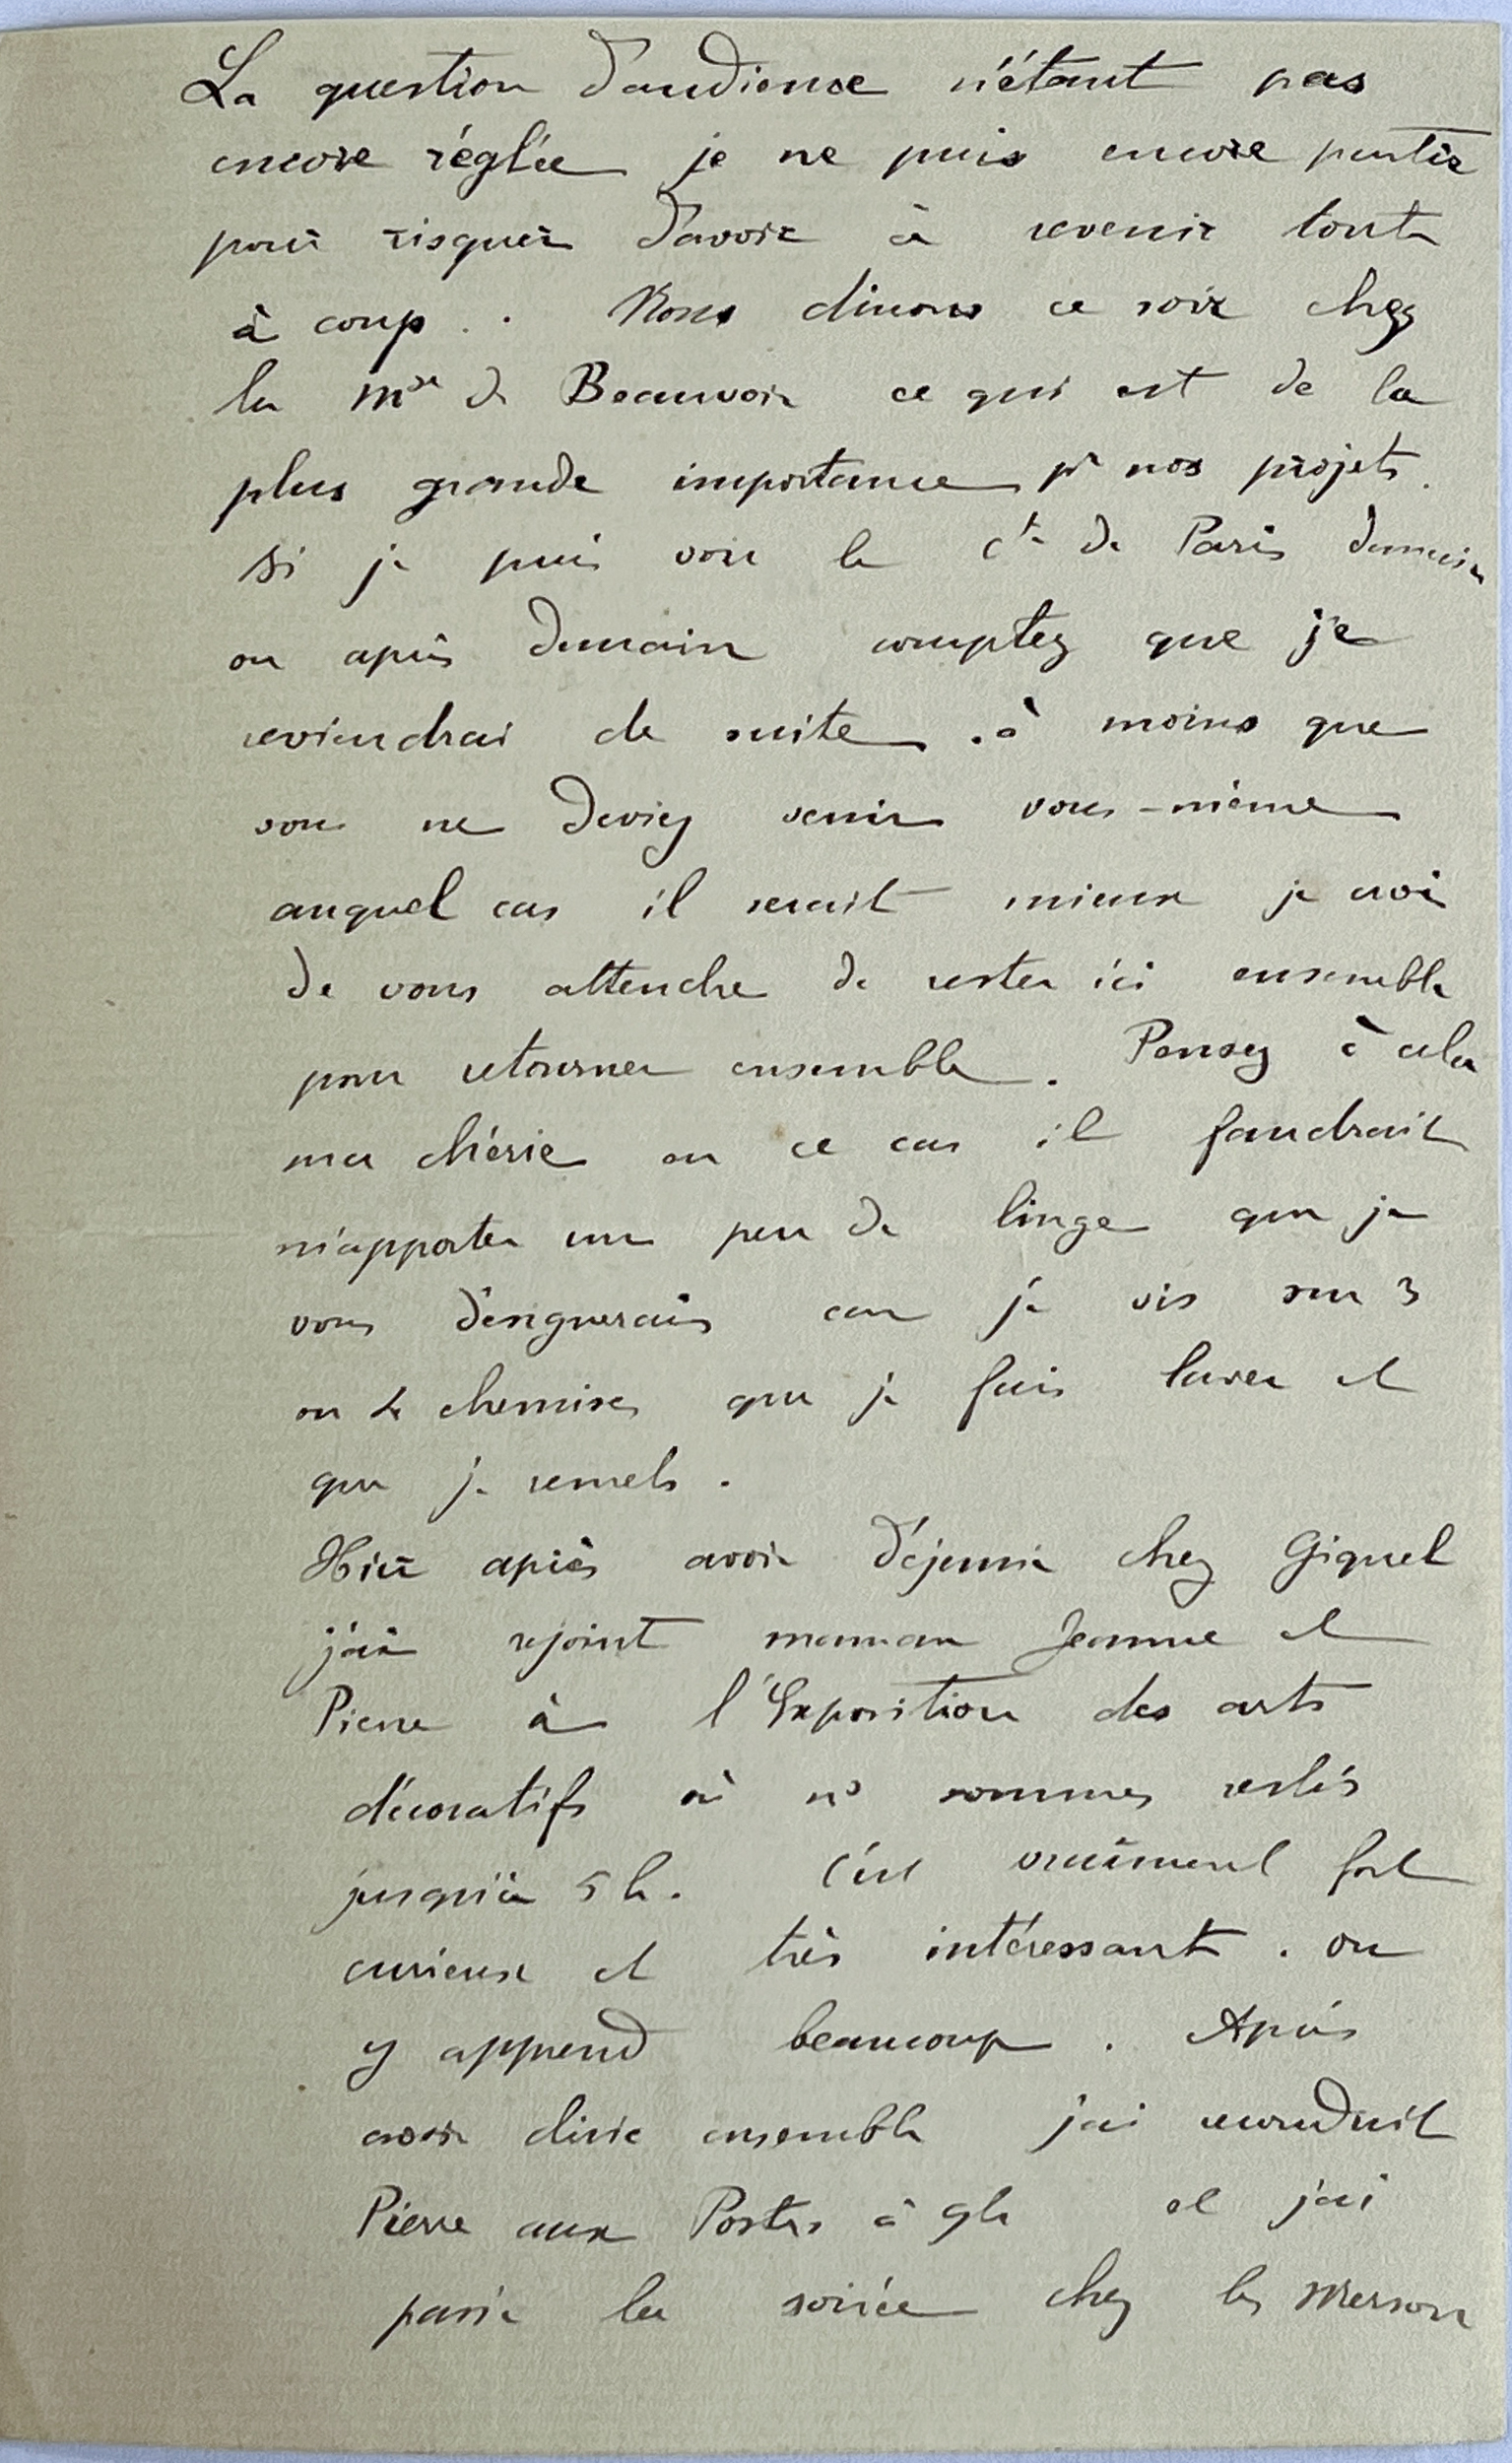 La question d'audience n'étant pas
encore réglée je ne puis encore partir
pour risquer d'avoir à revenir tout
à coup.. Nous dinons ce soir chez
la Mse de Beauvoir ce qui est de la
plus grande importance pr nos projets.
Si je puis voir le Cte de Paris demain
ou après demain comptez que je
reviendrai de suite. à moins que
vous ne deviez venir vous-même
auquel cas il serait mieux je crois
de vous attendre de rester ici ensemble
pour retourner ensemble. Pensez à cela
ma chérie en ce cas il faudrait
m'apporter un peu de linge que je
vous désignerais car je vis sur 3
ou 4 chemises que je fais laver et
que je remets.
Hier après avoir déjeuné chez Giquel
j'ai rejoint maman Jeanne et
Pierre à l'Exposition des arts
décoratifs où ns sommes restés
jusqu'à 5 h. C'est vraiment fort
curieux et très intéressant. on
y apprend beaucoup. Après
avoir diné ensemble j'ai reconduit
Pierre aux Postes à 9h et j'ai
passé la soirée chez les Merson